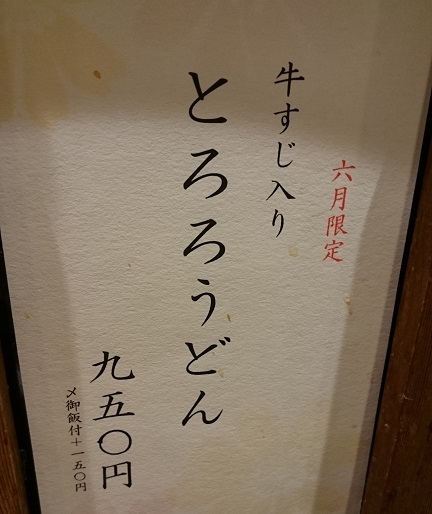 六月限定
牛すじ入り
とろろうどん
九五〇円
〆御飯付+一五〇円